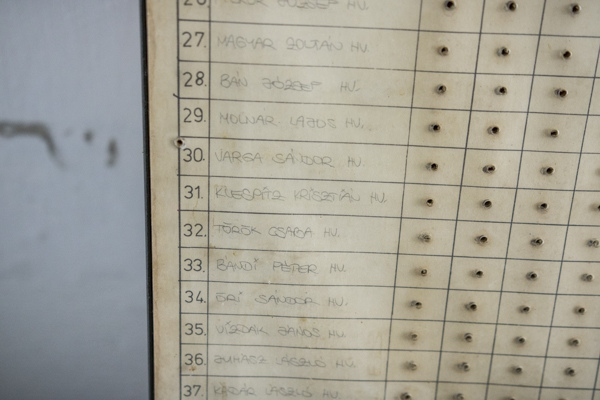 26. JÓZSEF HV.
27. MAGYAR ZOLTÁN HV.
28. BÁN JÓZSEF HV.
29. MOLNÁR LAJOS HV.
30. VARGA SÁNDOR HV.
31. KLESPITZ KRISZTIÁN HV.
32. TÖRÖK CSABA HV.
33. BANDI PÉTER HV.
34. ŐRI SÁNDOR HV.
35. JÁNOS HV.
36. JUHÁSZ LÁSZLÓ HV.
37. KÁDÁR LÁSZLÓ HV.